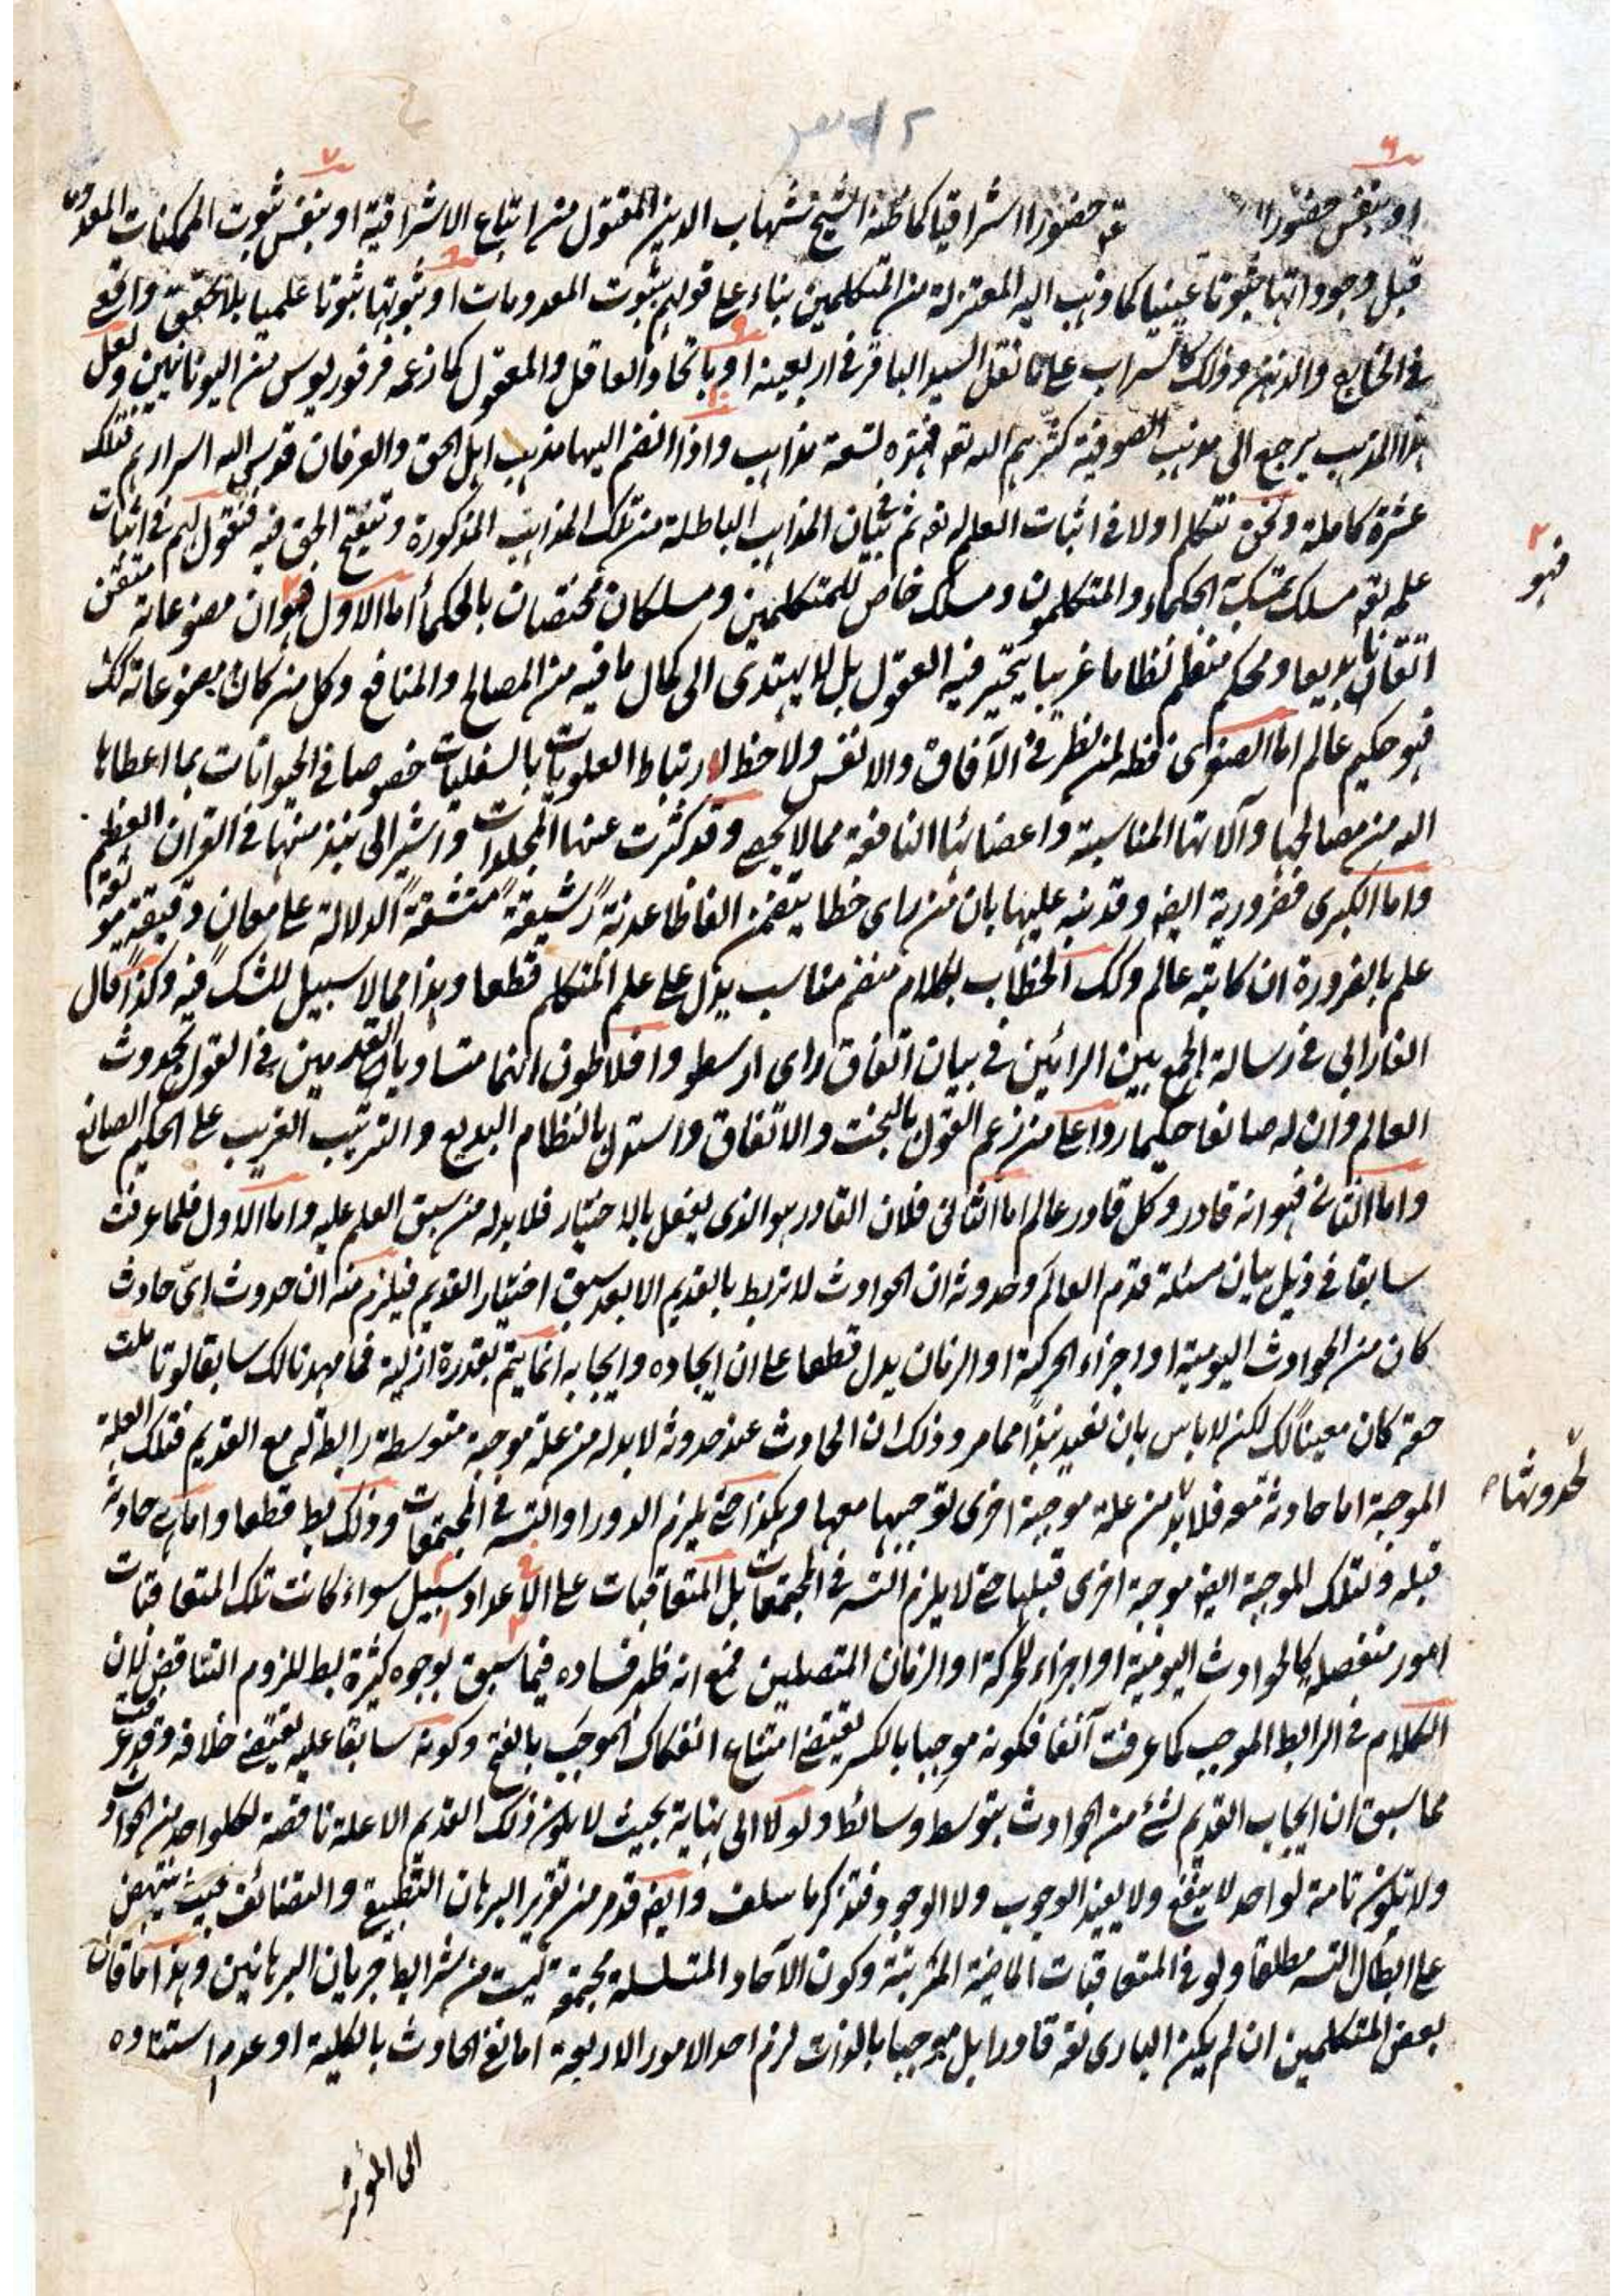 او بنفس حضورا عنده حضورا اشراقيا كما ظنه الشيخ شهاب الدين المقتول من اتباع الاشراقية او بنفس ثبوت الممكنات المعدومة
قبل وجوداتها ثبوتا عينيا كما ذهب اليه المعتزلة من المتكلمين بناء على قولهم بثبوت المعدومات او ثبوتها ثبوتا علميا بلا تحقق واقعي
في الخارج والذهن وذلك كالسراب على ما نقل السيد الباقر في اربعينه او باتحاد العاقل والمعقول كما زعمه فرفوريوس من اليونانيين ولعل
هذا المذهب يرجع الى مذهب الصوفية كثرهم الله تعه فهذه تسعة مذاهب واذا انضم اليها مذهب اهل الحق والعرفان قدس الله اسرارهم فتلك
عشرة كاملة ونحن نتكلم اولا في اثبات العلم له تعه ثم في بيان المذاهب الباطلة من تلك المذاهب المذكورة وتنقيح الحق فيه فنقول لهم في اثبات
علمه تعه مسلك تمسك به الحكماء والمتكلمون ومسلك خاص للمتكلمين ومسلكان مختصان بالحكماء اما الاول فهو ان مصنوعاته متقن
اتقانا بديعا ومحكم منتظم نظاما غريبا يتحير فيه العقول بل لا يهتدى الى كمال ما فيه من المصالح والمنافع وكل من كان مصنوعاته كك
فهو حكيم عالم اما الصغرى فظ لمن نظر في الآفاق والانفس ولاحظ ارتباط العلويات بالسفليات خصوصا في الحيوانات بما اعطاها
الله من مصالحها وآلاتها المناسبة واعضائها النافعة مما لا يحصى وقد كثرت عنها المجلدات واشير الى نبذ منها في القران العظيم
واما الكبرى فضرورية ايضه وقد ينبه عليها بان من راى خطا يتضمن الفاظا عذبة رشيقة منسقة الدلالة على معان دقيقة مونقة
علم بالضرورة ان كاتبه عالم وكك الخطاب بكلام منضم مناسب يدل على علم المتكلم قطعا وهذا مما لا سبيل للشك فيه وكذا قال
الفارابى في رسالة الجمع بين الرائين في بيان اتفاق راى ارسطو وافلاطون انهما متساويا القدمين في القول بحدوث
العالم وان له صانعا حكيما ردا على من زعم القول بالبخت والاتفاق واستدل بالنظام البديع والترتيب الغريب على الحكيم الصانع
واما الثانى فهو انه قادر وكل قادر عالم اما الثانى فلان القادر هو الذى يفعل بالاختيار فلا بد له من سبق العلم عليه واما الاول فلما عرفت
سابقا في ذيل بيان مسئلة قدم العالم وحدوثه ان الحوادث لا تربط بالقديم الا بعد سبق اختيار القديم فيلزم منه ان حدوث اىّ حادث
كان من الحوادث اليومية او اجزاء الحركة او الزمان يدل قطعا على ان ايجاده وايجابه انما يتم بقدرة ازلية فما مهدنا لك سابقا لو تاملت
حقه كان معينا لك لكن لا باس بان نعيد نبذا مما مر وذلك ان الحادث عند حدوثه لا بد له من علة موجبة متوسطة رابطة له مع القديم فتلك العلة
الموجبة اما حادثة معه فلا بد من علة موجبة اخرى توجبها معها وهكذا حتى يلزم الدور او التسه في المجتمعات وذلك بط قطعا واما حادثة
قبله ولتلك الموجبة ايضه موجبة اخرى قبلها حتى لا يلزم التسه في المجتمعات بل المتعاقبات على سبيل الاعداد سواء كانت تلك المتعاقبات
امور منفصلة كالحوادث اليومية او اجزاء للحركة او الزمان المتصلين فمع انه ظهر فساده فيما سبق بوجوه كثيرة بط للزوم التناقض لان
الكلام في الرابط الموجب كما عرفت آنفا فكونه موجبا بالكسر يقتضى امتناع انفكاك الموجب بالفتح وكونه سابقا عليه يقتضى خلافه وقد عرفت
مما سبق ان ايجاب القديم لشئ من الحوادث بتوسط وسائط ولو لا الى نهاية بحيث لا يكون ذلك القديم الا علة ناقصة لكل واحد من الحوادث
ولا تكون تامة لواحد لا ينفع ولا يفيد الوجوب ولا الوجود فتذكر ما سلف وايضه قد مر من تقرير البرهان التطبيق والتضائف بحيث ينتهض
على ابطال التسه مطلقا ولو في المتعاقبات الماضية المترتبة وكون الآحاد المتسلسلة مجتمعة ليست من شرايط جريان البرهانين وهذا ما قال
بعض المتكلمين ان لم يكن البارى تعه قادرا بل موجبا بالذات لزم احد الامور الاربعة اما نفى الحادث بالكلية او عدم استناده
الى المؤثر
فهو
لحدوثها